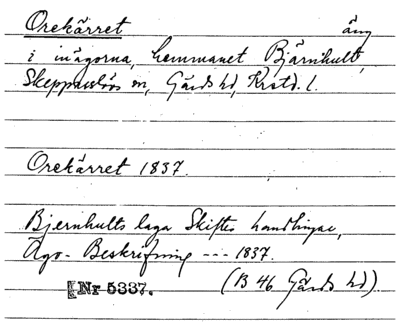 Orekärret äng
i inägorna, hemmanet Bjärnhult,
Skepparslövs sn, Gärds hd, Krstd. l.
Orekärret 1837.
Bjernhults laga Skiftes handlingar,
Ägo-Beskrifning --- 1837.
[Nr 5337. (B 46 Gärds hd)